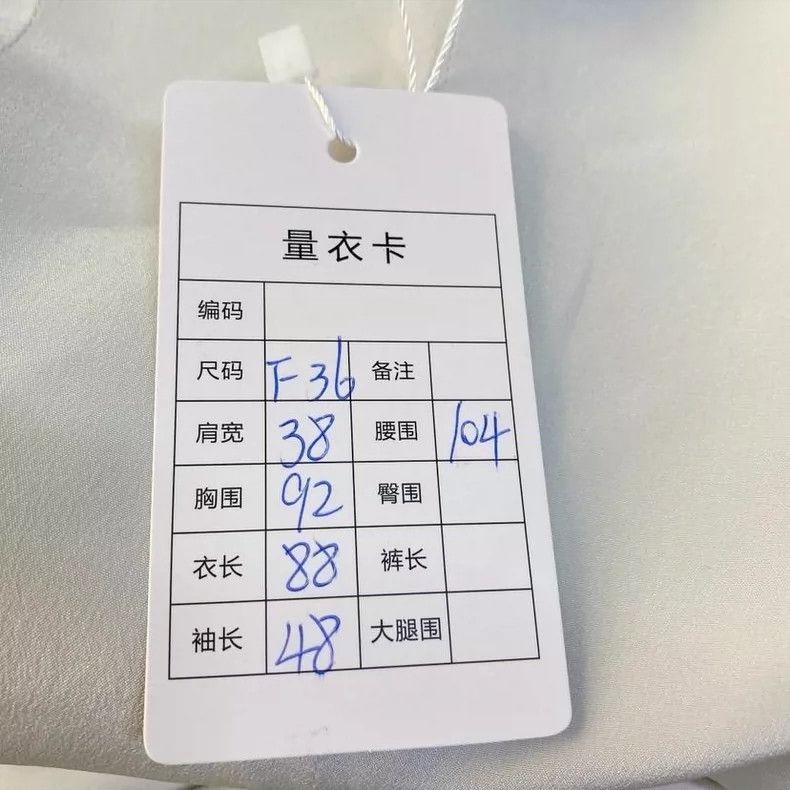 量衣卡
编码
尺码 F36 备注
肩宽 38 腰围 104
胸围 92 臀围
衣长 88 裤长
袖长 48 大腿围